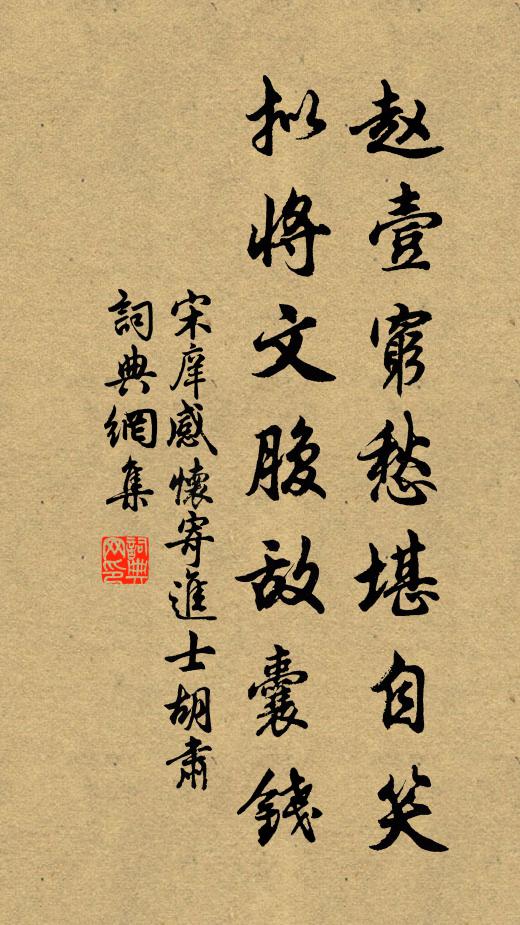 赵壹窮愁堪自笑
拟将文腹敌囊錢
宋庠感懷寄進士胡肃
詞典網集
詞典网印